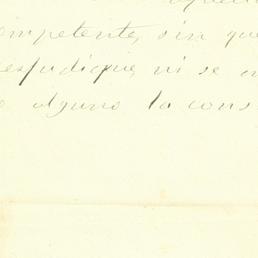 ompetente, sin que
esjudique, ni se
alguno la cons